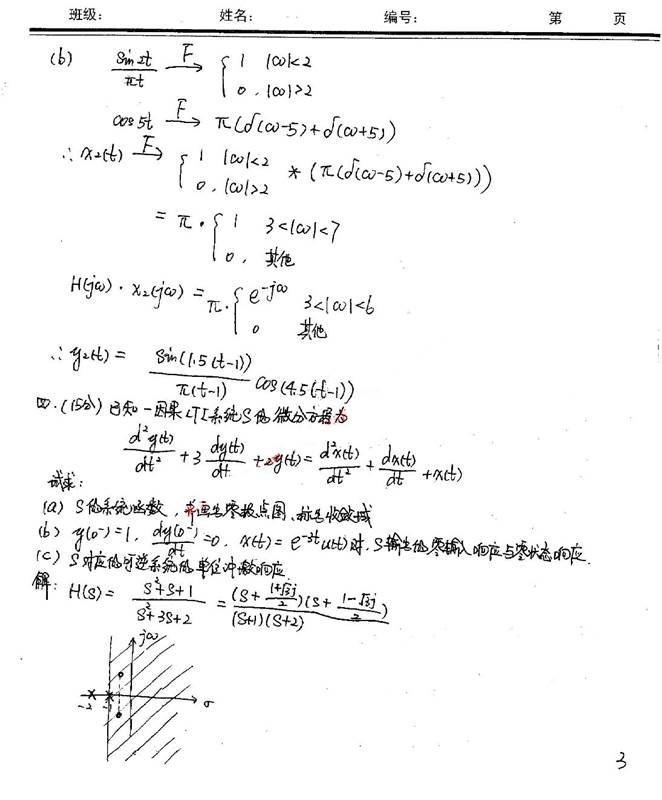 班级: 姓名: 编号: 第 页
(b) sin2t/πt —F→ { 1 |ω|<2
0, |ω|>2
cos5t —F→ π(δ(ω-5)+δ(ω+5))
∴ x₂(t) —F→ { 1 |ω|<2
0, |ω|>2 * (π(δ(ω-5)+δ(ω+5)))
= π·{ 1 3<|ω|<7
0, 其他
H(jω)·x₂(jω) = π·{ e^-jω 3<|ω|<6
0 其他
∴ y₂(t) = sin(1.5(t-1))/π(t-1) cos(4.5(t-1))
四.(15分) 已知一因果LTI系统S的微分方程为
d²y(t)/dt² + 3 dy(t)/dt + 2y(t) = d²x(t)/dt² + dx(t)/dt + x(t)
试求:
(a) S的系统函数, 并画出零极点图、标出收敛域
(b) y(0⁻)=1, dy(0⁻)/dt=0, x(t)=e^-3t u(t)时, S输出的零输入响应与零状态响应.
(c) S对应的可逆系统的单位冲激响应.
解: H(s) = s²+s+1/s²+3s+2 = (s+ 1+√3j/2)(s+ 1-√3j/2)/(s+1)(s+2)
jω
-2 -1 σ
3